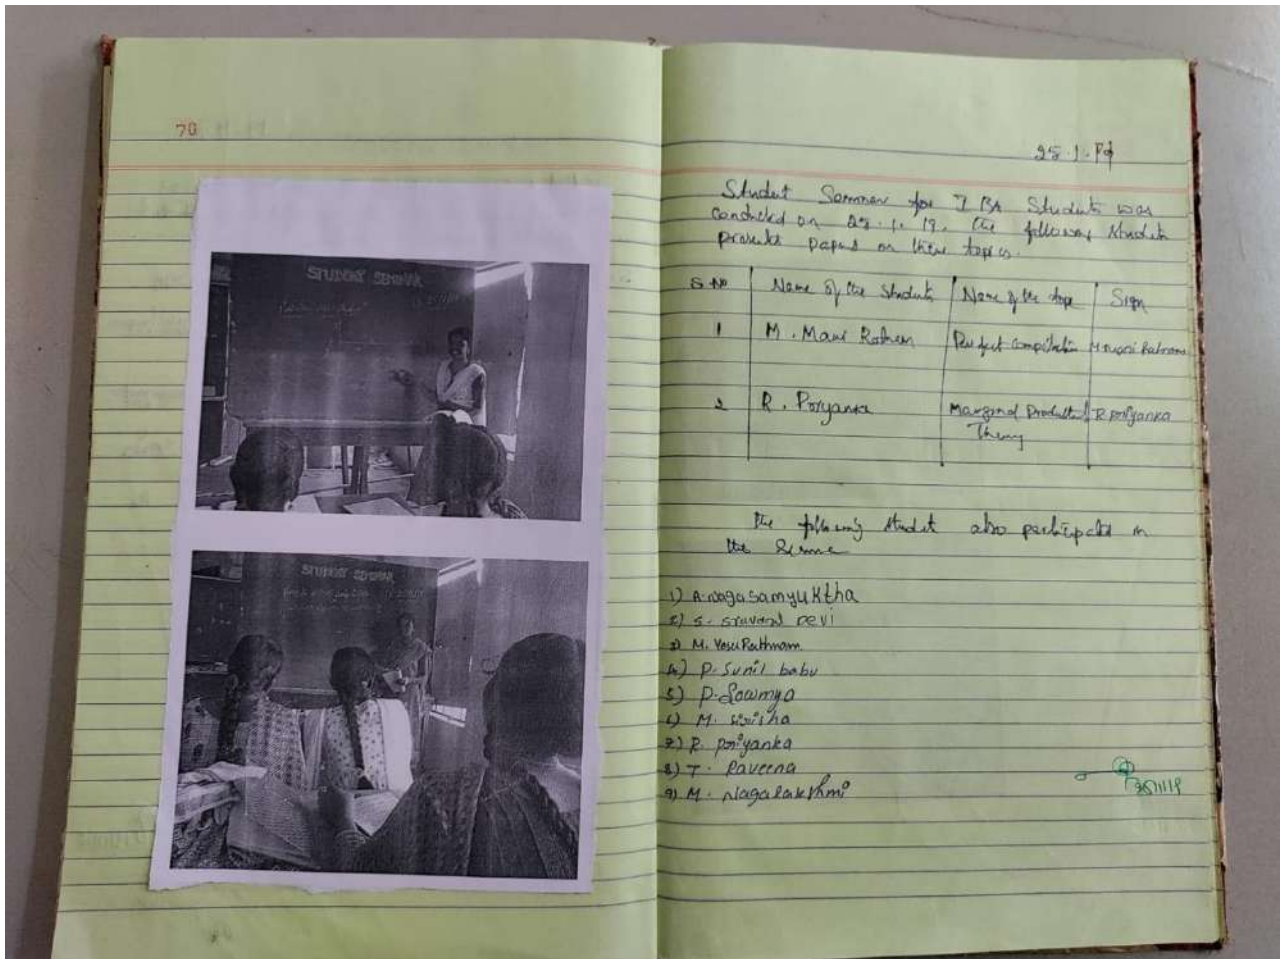 70
STUDENT SEMINAR
STUDENT SEMINAR
25.1.19
Student Seminar for I BA Students was
conducted on 25.1.19. the following students
presents papers on these topics.
S.No Name of the Students Name of the Sign
1 M. Mani Ratnam Perfect Competition M. Mani Ratnam
2 R. Poriyanka Marginal R. Poriyanka
Theory
the following student also participated in
the
1) A. Nagasamyuktha
2) S. Sravani Devi
3) M. Yesu Rathnam
4) P. Sunil babu
5) P. Sowmya
6) M. Sirisha
7) R. Poriyanka
8) T. Raveena
9) M. Nagalakshmi
25/1/19